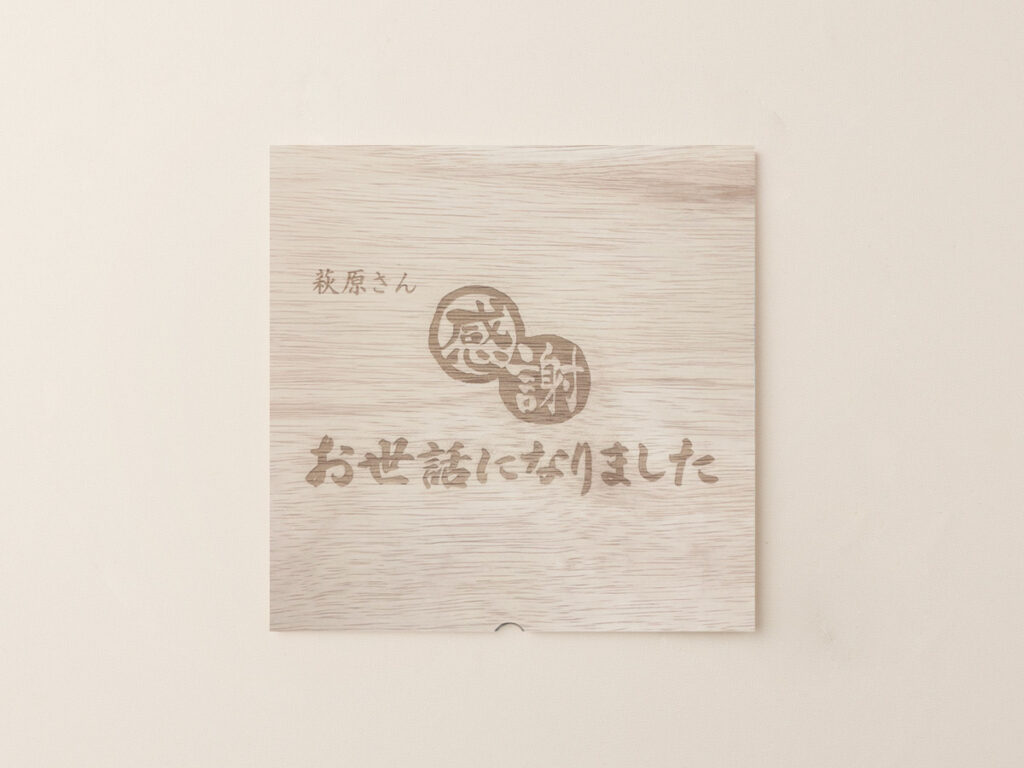 萩原さん
感謝
お世話になりました